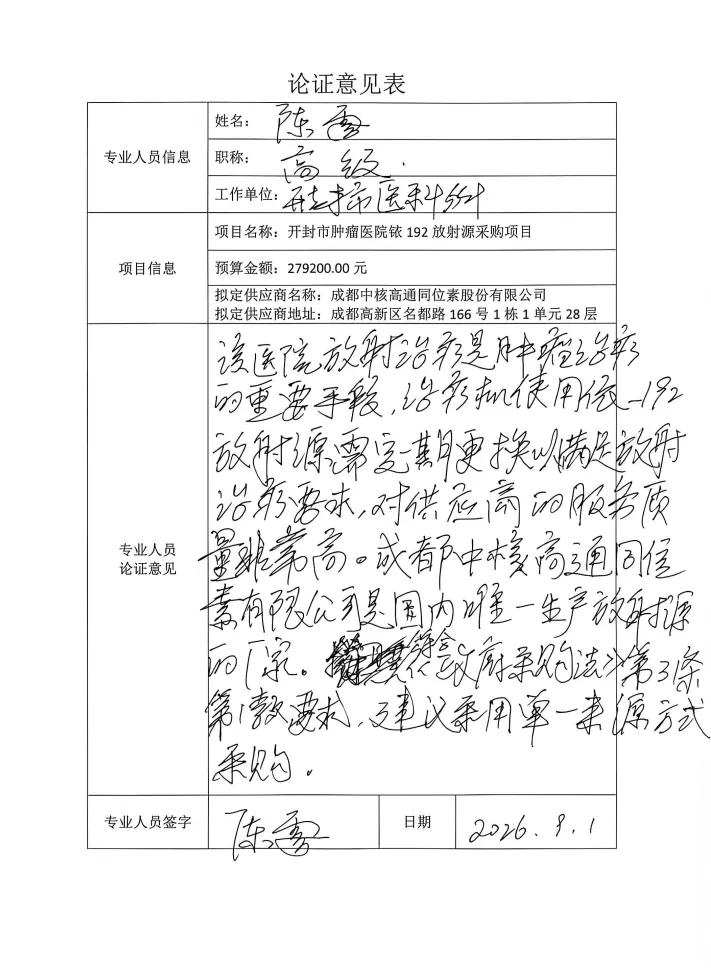 论证意见表
专业人员信息
姓名：陈雪
职称：高级.
工作单位：开封市医科所
项目信息
项目名称：开封市肿瘤医院铱 192 放射源采购项目
预算金额：279200.00 元
拟定供应商名称：成都中核高通同位素股份有限公司
拟定供应商地址：成都高新区名都路 166 号 1 栋 1 单元 28 层
专业人员
论证意见
该医院放射治疗是肿瘤治疗
的重要手段，治疗机使用铱-192
放射源需定期更换以满足放射
治疗要求，对供应商的服务质
量非常高。成都中核高通同位
素有限公司是国内唯一生产放射源
的厂家。符合政府采购法第31条
第1款要求，建议采用单一来源方式
采购。
专业人员签字
陈雪
日期
2026.9.1